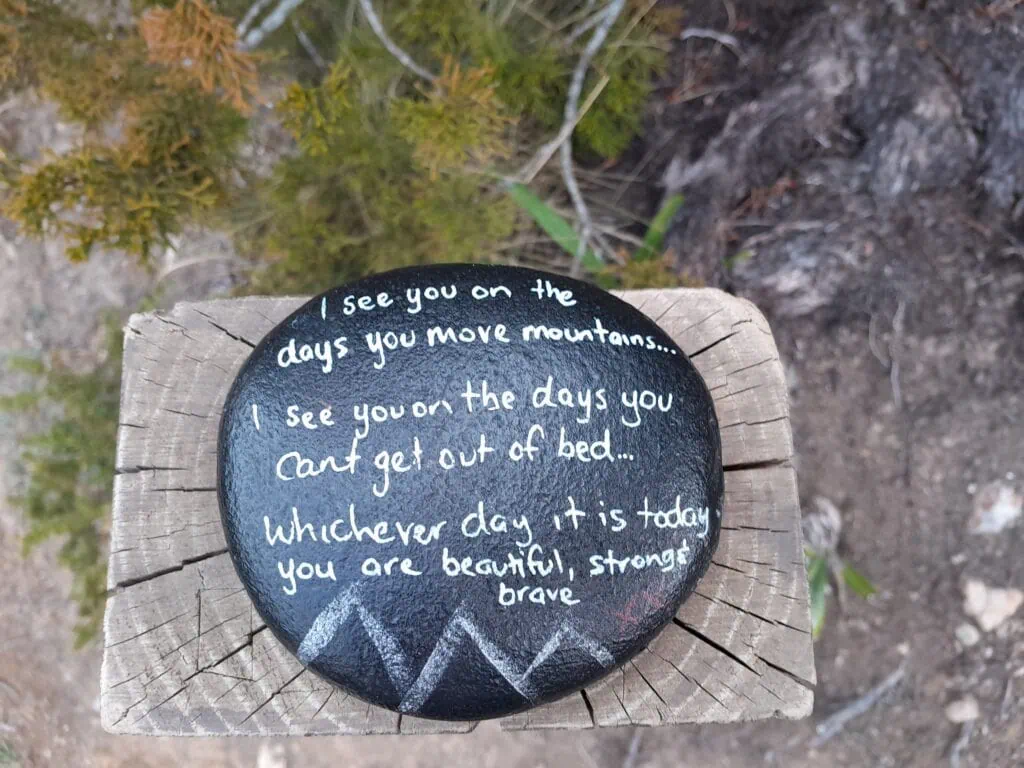 I see you on the
days you move mountains...
I see you on the days you
cant get out of bed...
Whichever day it is today
you are beautiful, strong &
brave